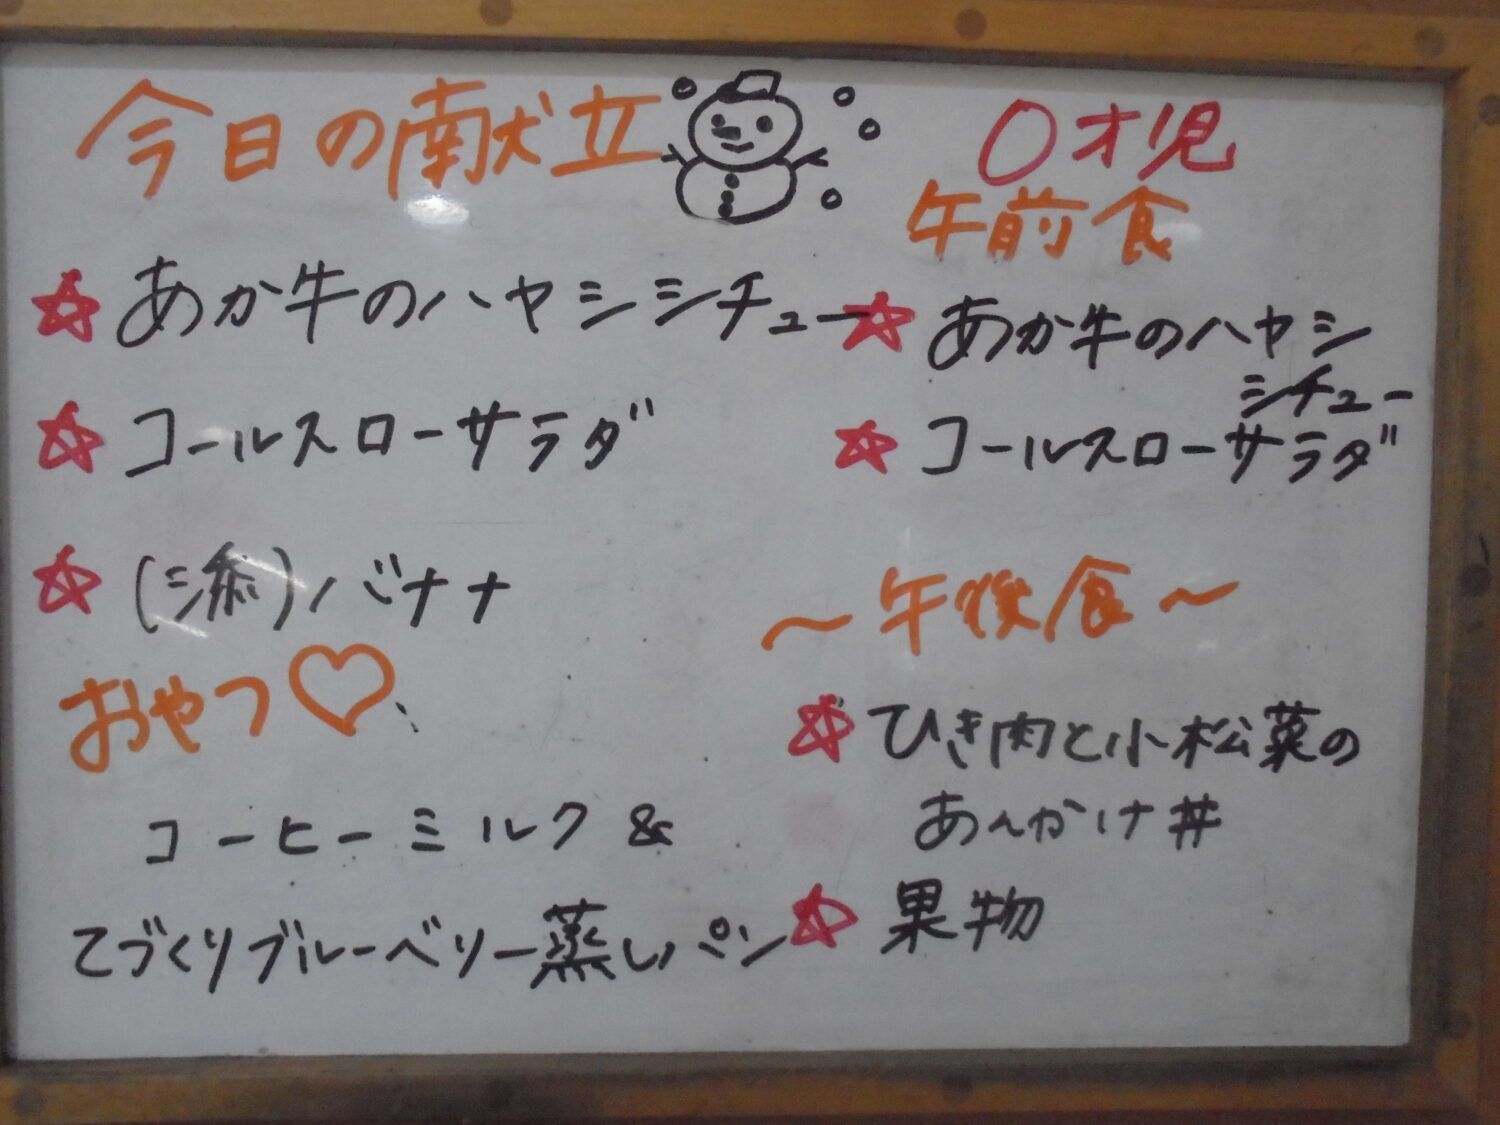 今日の献立
☆あか牛のハヤシシチュー
☆コールスローサラダ
☆ バナナ
おやつ♡
コーヒーミルク&
てづくりブルーベリー蒸しパン
0才児
午前食
☆あか牛のハヤシ
シチュー
☆コールスローサラダ
～午後食～
☆ひき肉と小松菜の
あんかけ丼
☆果物